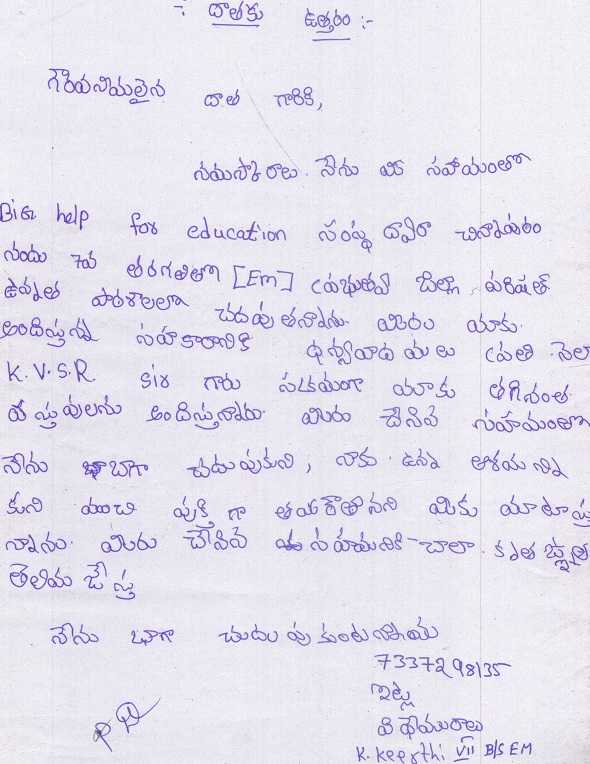 -: దాతకు ఉత్తరం :-
గౌరవనీయులైన దాత గారికి,
నమస్కారాలు. నేను మీ సహాయంతో
BiG help for education సంస్థ ద్వారా చినాపురం
నందు 7వ తరగతిలో [Em] ప్రభుత్వ జిల్లా పరిషత్
ఉన్నత పాఠశాలలో చదువుతన్నాను. మీరు మాకు
అందిస్తున్న సహకారానికి ధన్యవాదములు ప్రతి నెలా
K.V.S.R sir గారు సక్రమంగా మాకు తగినంత
వస్తువులను అందిస్తునారు. మీరు చేసిన సహాయంతో
నేను బాగా చదువుకుని, నాకు ఉన్న ఆశయ
కుని మంచి వ్యక్తి గా తయారౌతానని మీకు మాటిస్తు
న్నాను. మీరు చేసిన సహాయనికి చాలా కృతజ్ఞత
తెలియజేస్తు
నేను బాగా చదువుకుంటున్నాను
7337298135
ఇట్లు
విధేయురాలు
K. Keerthi VII B/S EM